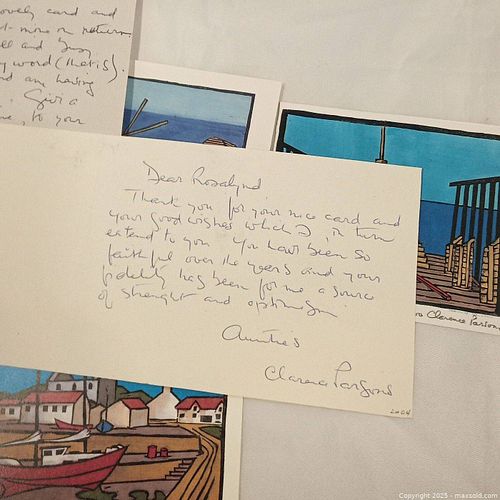 lovely card and
on return
and busy
my word (that is).
and am having
Give a
me, to your
Dear Rosalynd
Thank you for your nice card and
your good wishes which I in turn
extend to you. You have been so
faithful over the years and your
fidelity has been for me a source
of strenght and optimism
Clarence Parsons
2004
Clarence Parsons
Copyright 2025 - maxsold.com